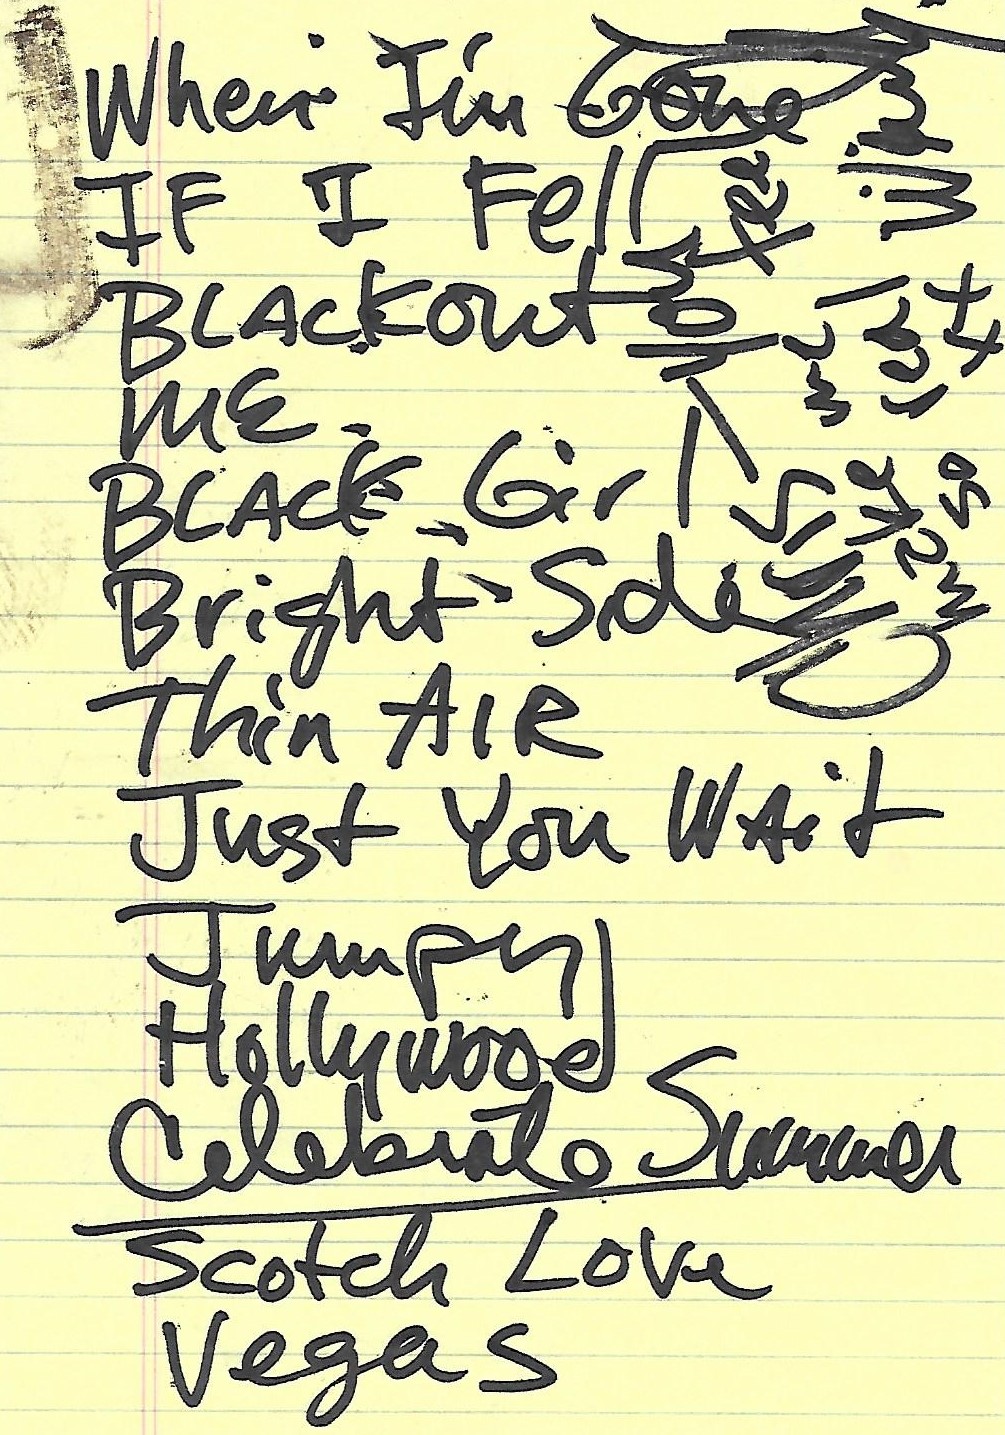 When I'm Gone
IF I Fell
BLACKout
ME
BLACK Girl
Bright Side
Thin AIR
Just You WAit
Jumpy
Hollywood
Celebrate Summer
Scotch Love
Vegas